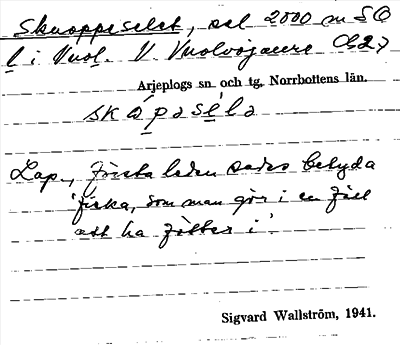 Skuoppeselet, sel 2000 m SO
l i Vuol. V. Vuolvojaure Ch27
Arjeplogs sn. och tg. Norrbottens län.
skåpasela
Lap., första leden sades betyda
'ficka, som man gör i en fäll
att ha fötter i'.
Sigvard Wallström, 1941.